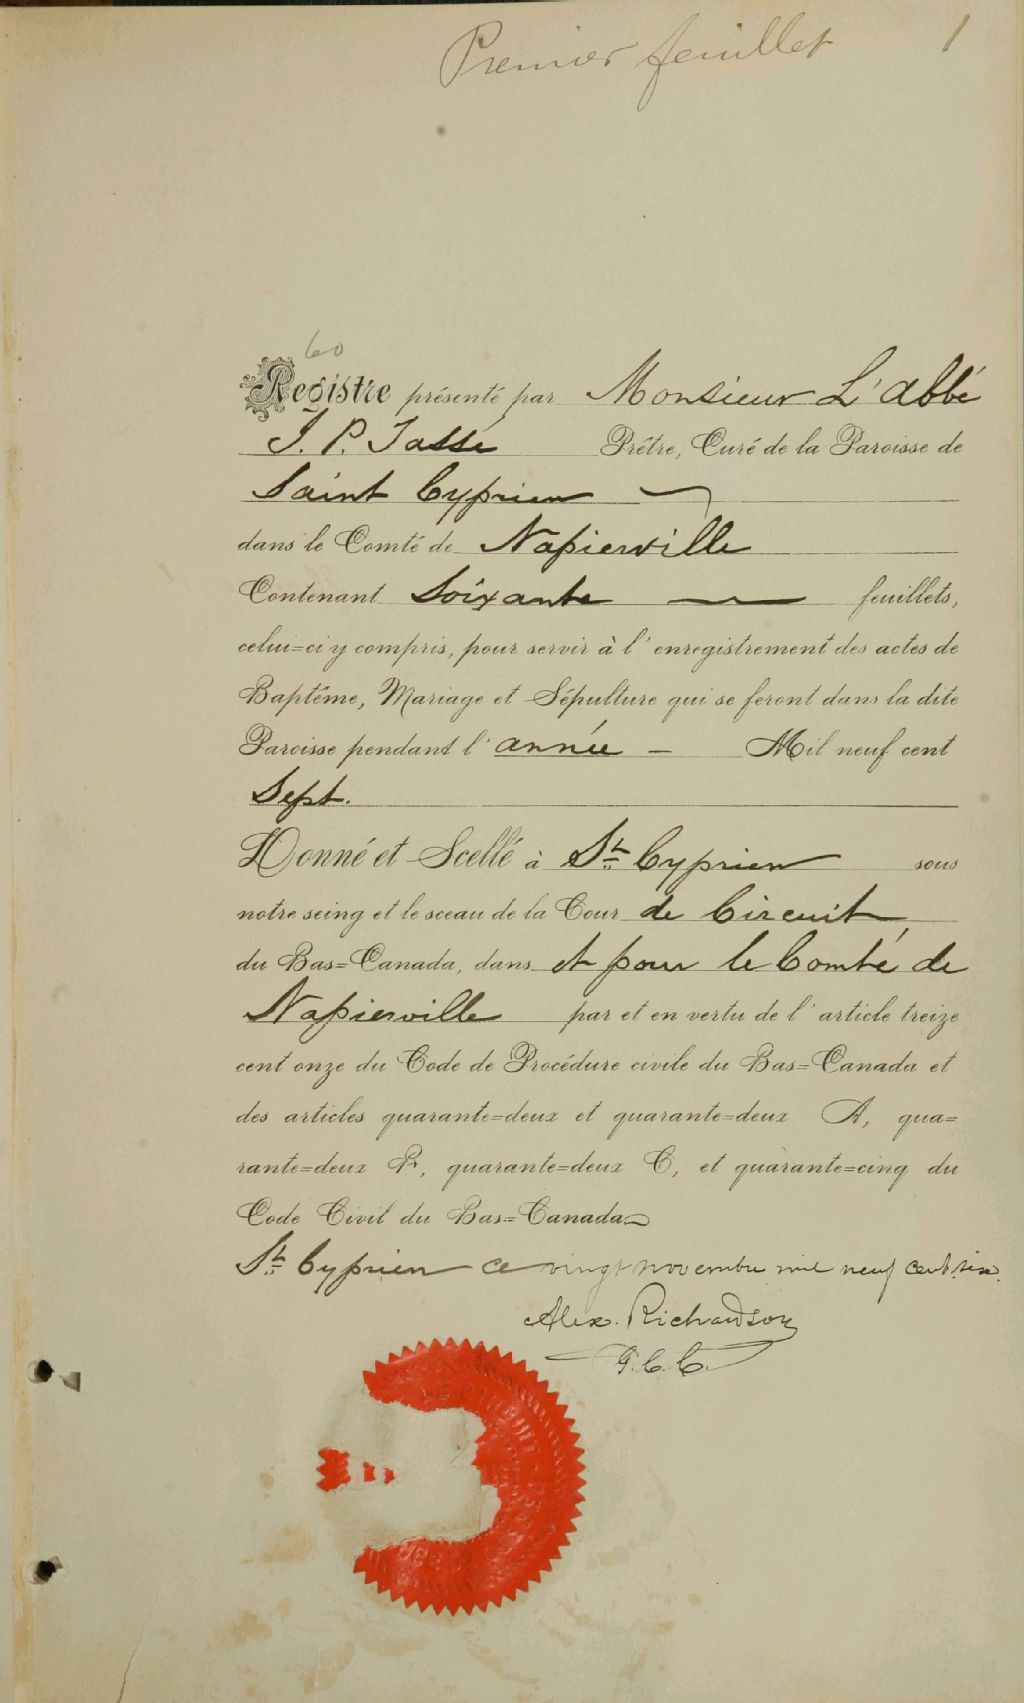 Premier feuillet 1
60
Registre présenté par Monsieur L'abbé
J. P. Jassé Prêtre, Curé de la Paroisse de
Saint Cyprien
dans le Comté de Napierville
Contenant Soixante feuillets,
celui=ci y compris, pour servir à l'enregistrement des actes de
Baptême, Mariage et Sépulture qui se feront dans la dite
Paroisse pendant l'année — Mil neuf cent
Sept.
Donné et Scellé à St Cyprien sous
notre seing et le sceau de la Cour de Circuit,
du Bas=Canada, dans et pour le Comté de
Napierville par et en vertu de l'article treize
cent onze du Code de Procédure civile du Bas=Canada et
des articles quarante=deux et quarante=deux A, qua=
rante=deux B, quarante=deux C, et quarante=cinq du
Code Civil du Bas=Canada
St Cyprien ce vingt novembre mil neuf cent six.
Alex. Richardson
G.C.C.